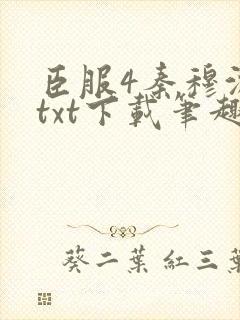 臣服4秦穆
txt下载笔趣
葵二葉 红三葉